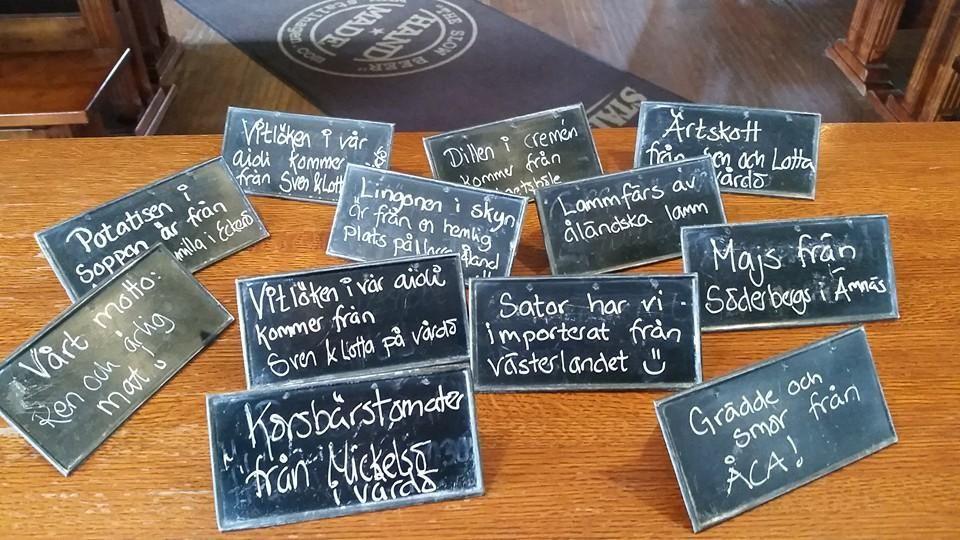 THE "SLOW BEER"
HAND
MADE
stallhagen.com
STA
Vitlöken i vår
aioli kommer
från Sven & Lotta
Dillen i cremén
kommer från
Ärtskott
från Sven och Lotta
vårdö
Potatisen i
Soppan är från
milla i Eckerö
Lingonen i skyn
är från en hemlig
plats på
Lammfärs av
åländska lamm
Majs från
Söderbergs i Ämnäs
Vårt motto:
Ren och ärlig
mat!
Vitlöken i vår aioli
kommer från
Sven & Lotta på vårdö
Sator har vi
importerat från
västerlandet
Korsbärstomater
från Mickelsö
i vårdö
Grädde och
smör från
ÅCA!